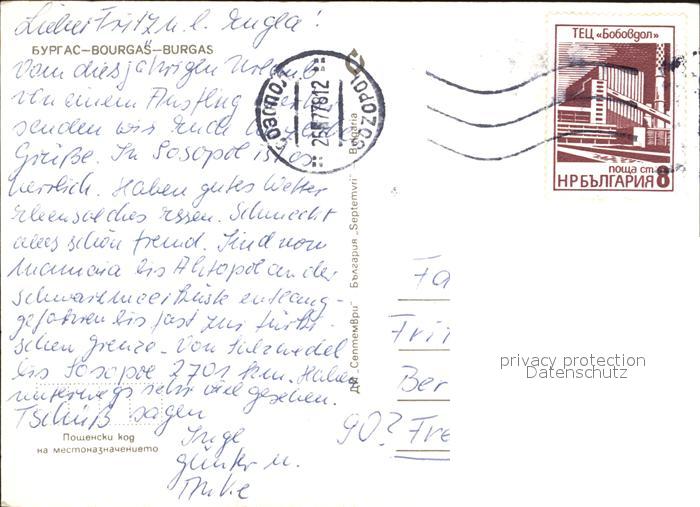 Lieber Fritz u. l. Engla!
БУРГАС–BOURGAS–BURGAS
Vom diesjährigen Urlaub
von einem Ausflug
senden wir Euch
Grüße. In Sosopol ist es
herrlich. Haben gutes Wetter
ebensolches Essen. Schmeckt
alles schön fremd. Sind von
Mamaia bis Ahtopol an der
Schwarzmeerküste entlang-
gefahren bis fast zur türki-
schen Grenze. Von Salzwedel
bis Sosopol 2701 km. Haben
unterwegs sehr viel gesehen.
Tschüß sagen
Inge
Günter u.
Anke
Пощенски код
на местоназначението
ДП „Септември" България „Septemvri" Bulgaria
SOZOPOL
26 8 77 812
ТЕЦ «Бобовдол»
поща ст.
НРБЪЛГАРИЯ 8
Fa
Fri
Ber
90? Fre
privacy protection
Datenschutz